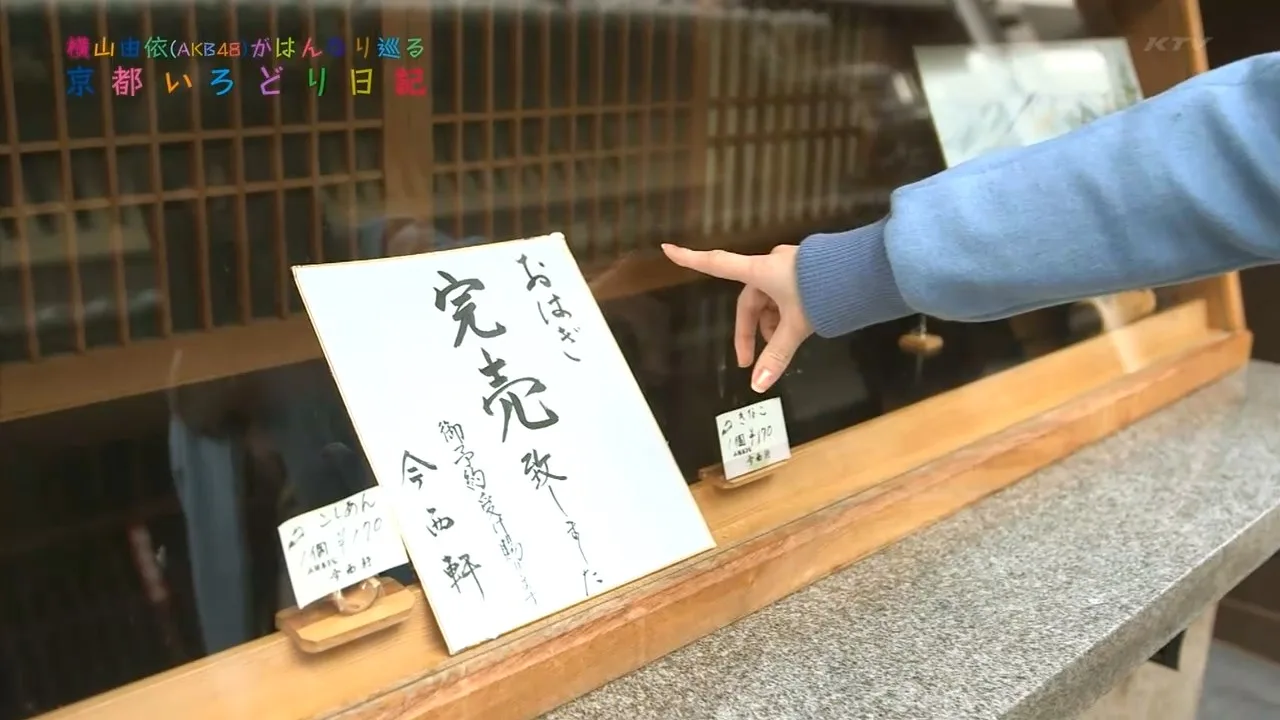 横山由依(AKB48)がはんなり巡る
京都いろどり日記
KTV
おはぎ
完売致しました
御予約受け賜ります
今西軒
こしあん
1個¥170
今西軒
きなこ
1個¥170
今西軒